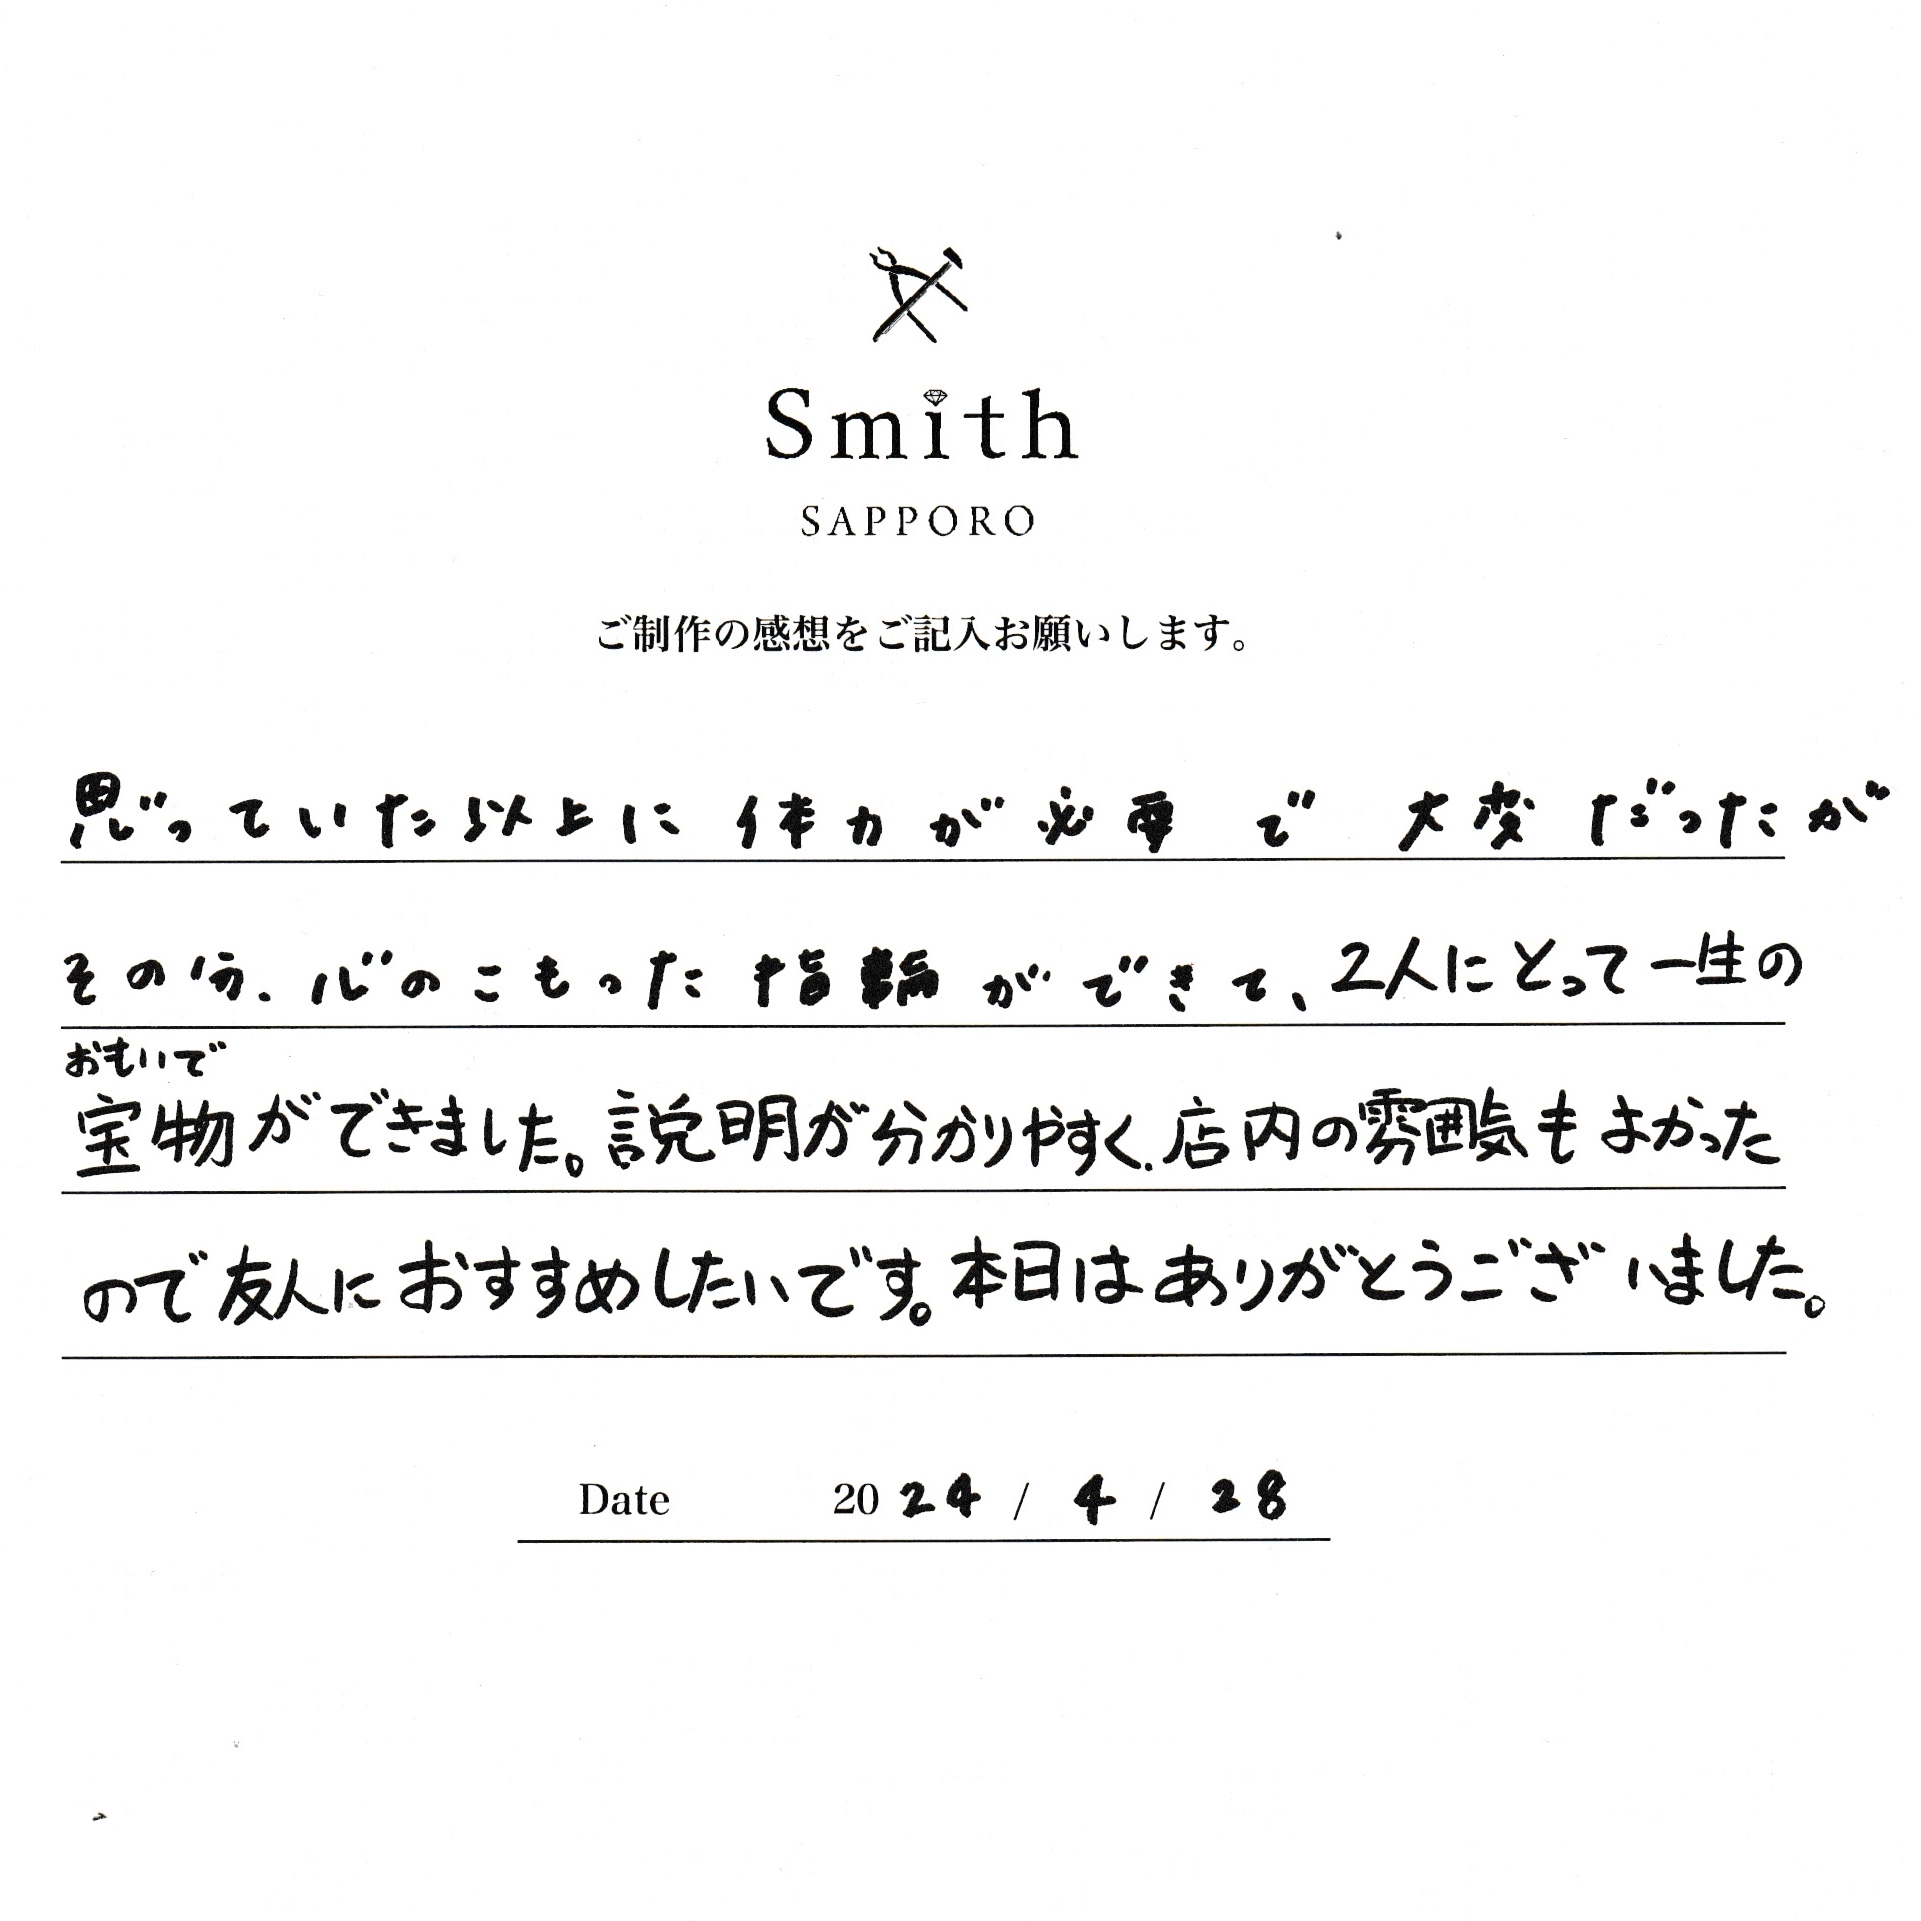 Smith
SAPPORO
ご制作の感想をご記入お願いします。
思っていた以上に体力が必要で大変だったが
その分、心のこもった指輪ができて、2人にとって一生の
おもいで
宝物ができました。説明が分かりやすく、店内の雰囲気もよかった
ので友人におすすめしたいです。本日はありがとうございました。
Date 2024 / 4 / 28